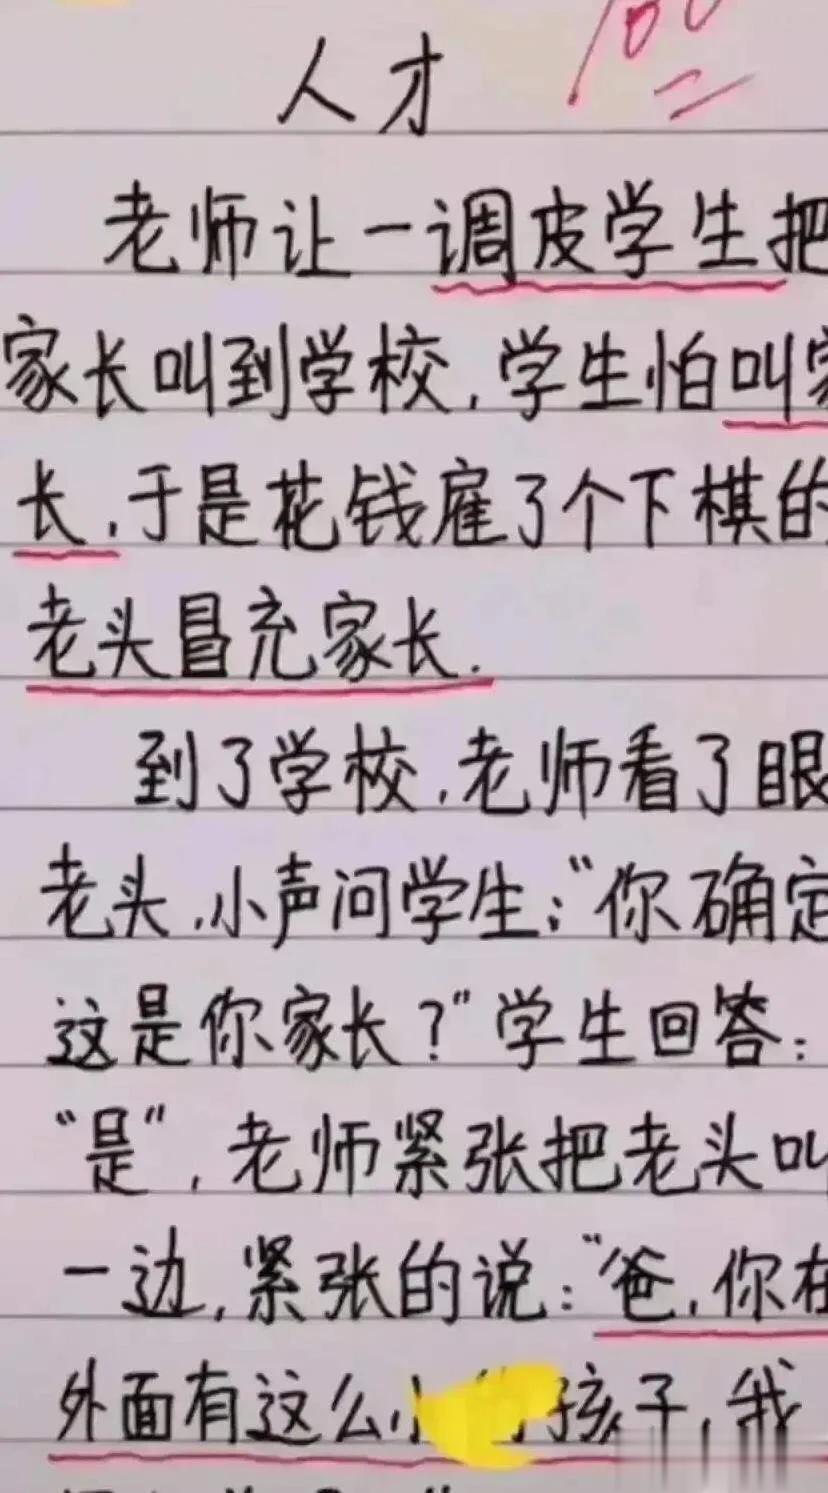 100
人才
老师让一调皮学生把
家长叫到学校,学生怕叫家
长,于是花钱雇了个下棋的
老头冒充家长.
到了学校,老师看了眼
老头,小声问学生:“你确定
这是你家长?”学生回答:
“是”,老师紧张把老头叫
一边,紧张的说:“爸,你在
外面有这么小 孩子,我